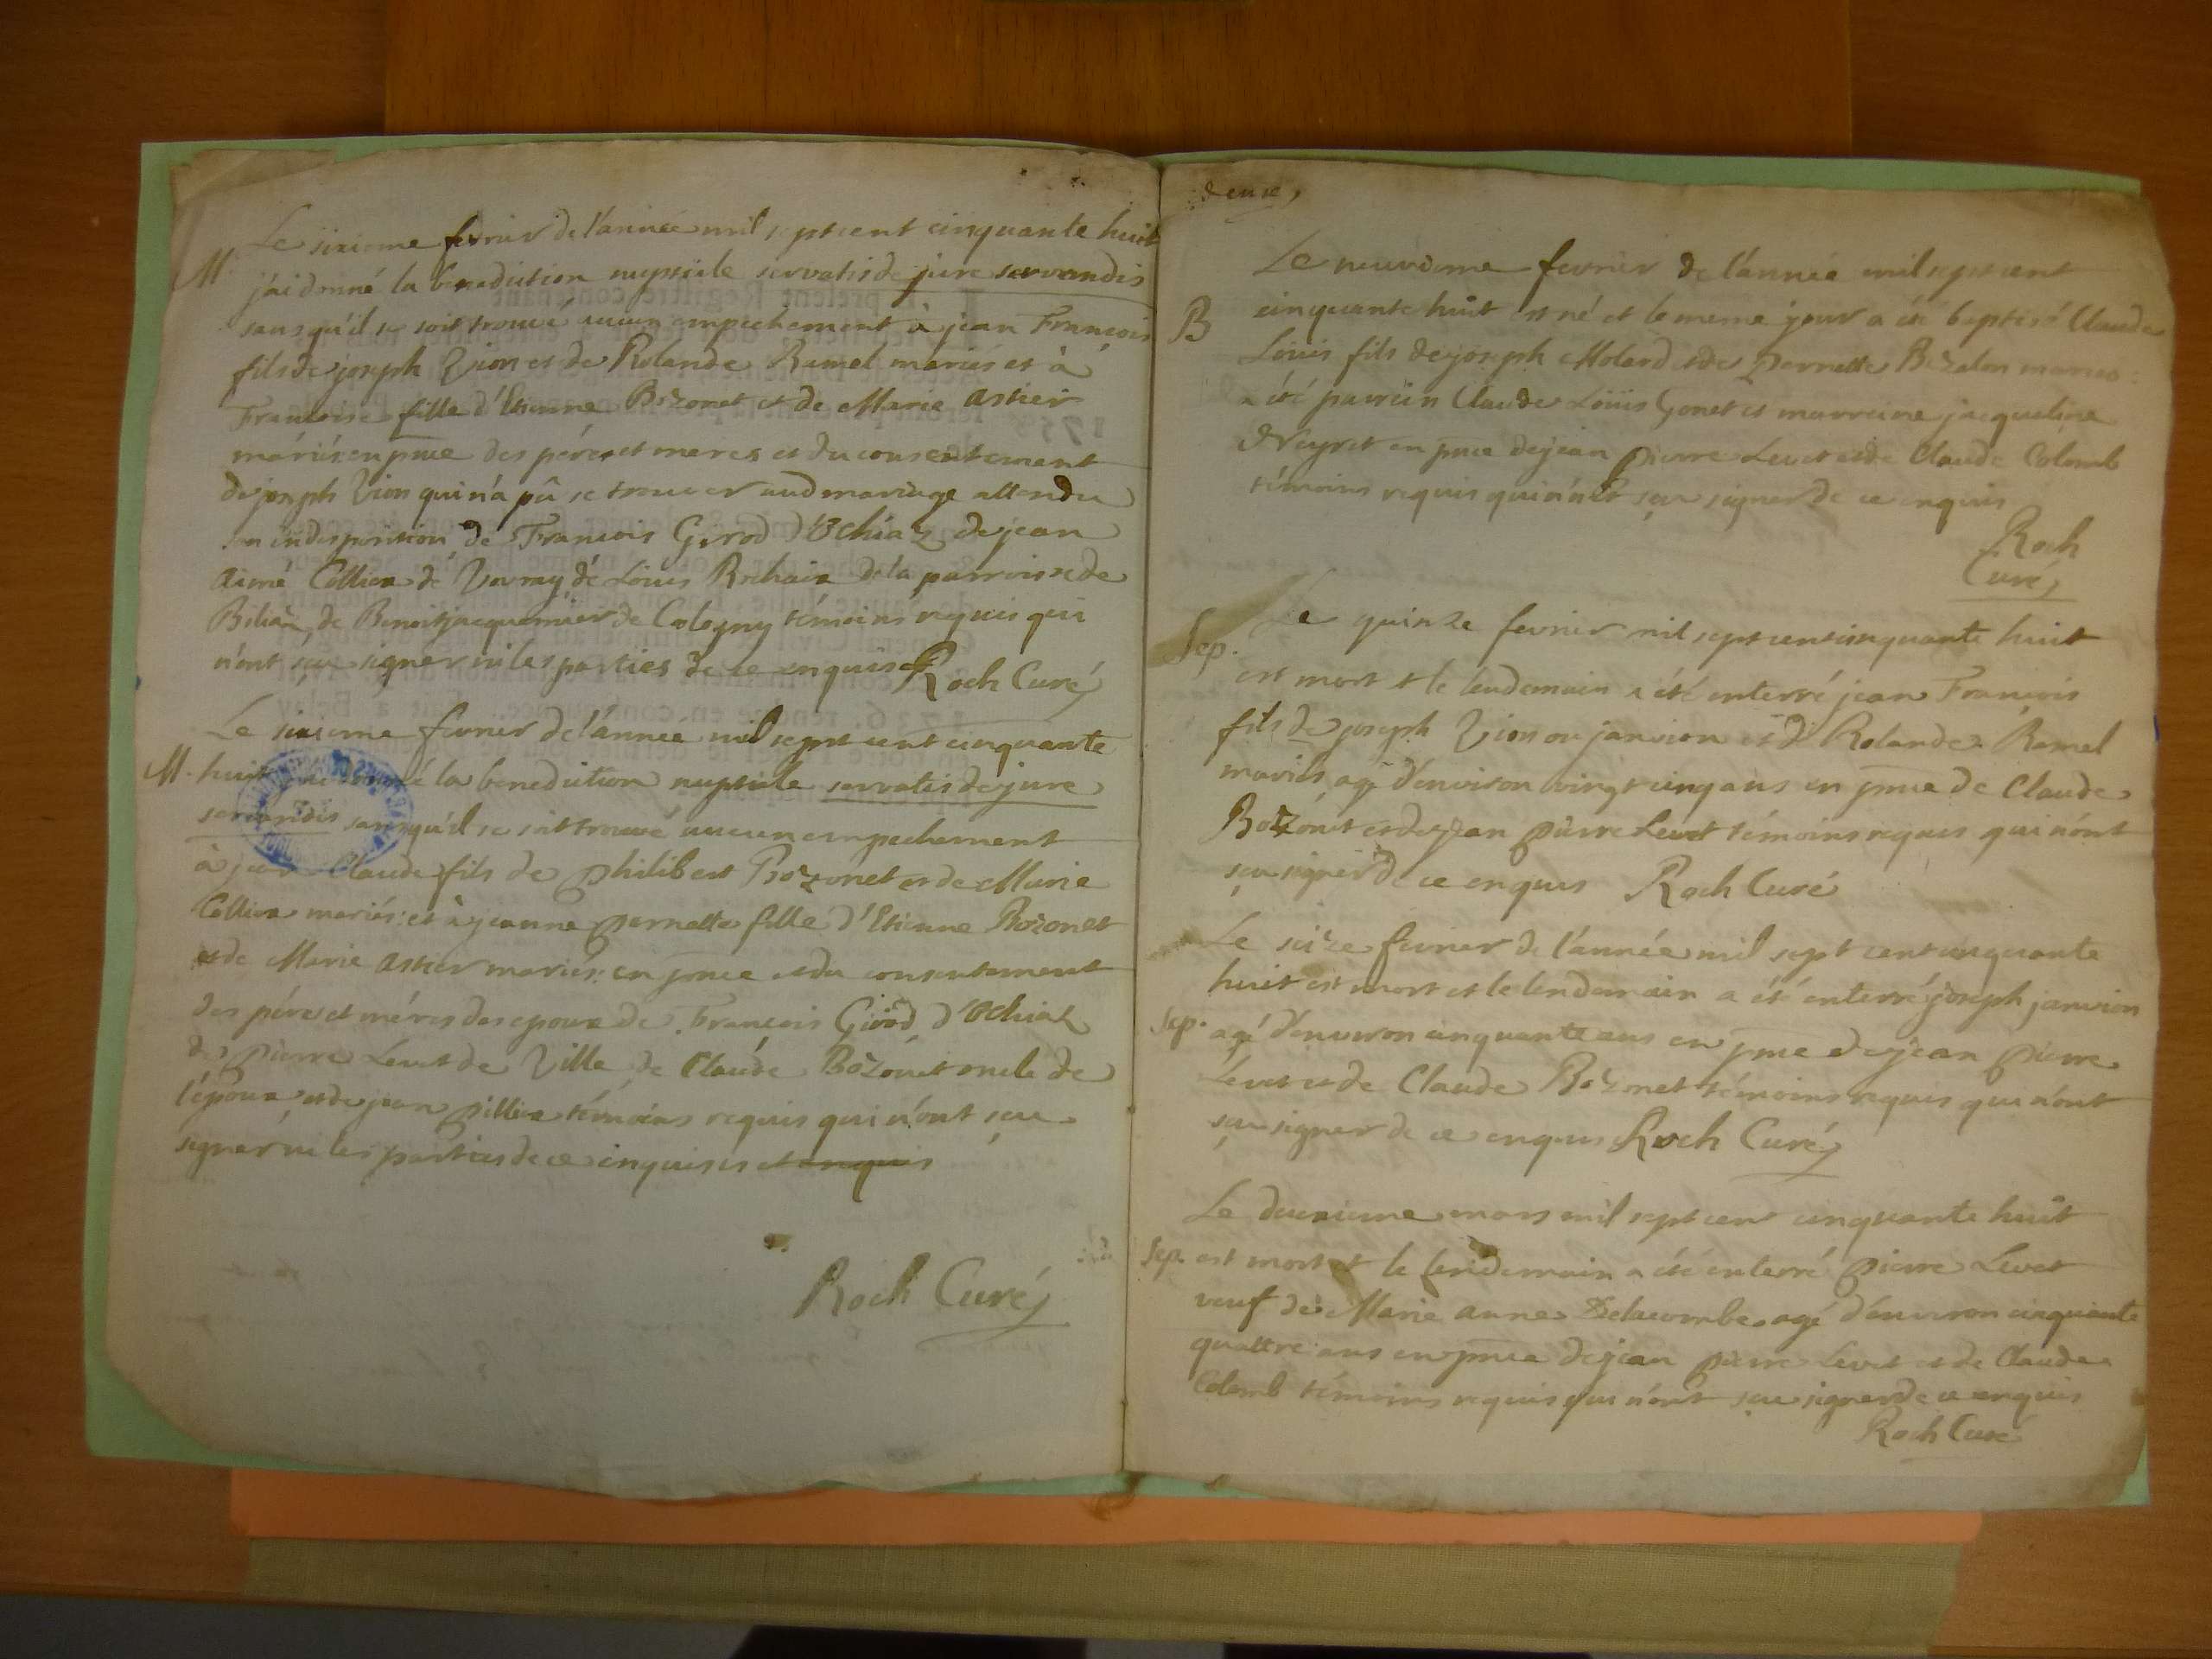 Le sixieme fevrier de l'année mil sept cent cinquante huit
M. j'ai donné la benediction nuptiale servatis de jure servandis
sans qu'il se soit trouvé aucun empechement à jean François
fils de joseph Vion et de Rolande Ramel mariés et à
Francoise fille d'Etienne Bozonet et de Marie Astier
mariés: en pnce des péres et meres et du consentement
de joseph Vion qui n'a pû se trouver aud mariage attendu
son indisposition de François Girod d'Ochiaz de jean
Aimé Collion de de Louis Rochaix de la parroisse de
de Benoit jacquemier de Cologny témoins requis qui
n'ont sçu signer ni les parties de ce enquis Roch Curé
Le sixieme fevrier de l'année mil sept cent cinquante
M. huit donné la benediction nuptiale servatis de jure
servandis sans qu'il se soit trouvé aucun empechement
à jean Claude fils de Philibert Bozonet et de Marie
mariés: et à jeanne Pernette fille d'Etienne Bozonet
et de Marie Astier mariés: en pnce et du consentement
des péres et méres des epoux de François Girod d'Ochiaz
de Pierre Levet de Ville de Claude Bozonet oncle de
l'époux et de jean témoins requis qui n'ont sçu
signer ni les parties de ce enquises et enquis
Roch Curé
deux,
Le neuvieme fevrier de l'année mil sept cent
B cinquante huit est né et le meme jour a été baptisé Claude
Loüis fils de joseph Molard et de Pernette Bozalon mariés:
a été parrein Claude Loüis Gonet et marreine jacqueline
Neyret en pnce de jean Pierre Levet et de Claude Colomb
témoins requis qui n'ont sçu signer de ce enquis
Roch
Curé
Le quinze fevrier mil sept cent cinquante huit
Sep. est mort et le lendemain a été enterré jean François
fils de joseph Vion ou janvion et de Rolande Ramel
mariés agé d'environ vingt cinq ans en pnce de Claude
Bozonet et de jean Pierre Levet témoins requis qui n'ont
sçu signer de ce enquis Roch Curé
Le seize fevrier de l'année mil sept cent cinquante
huit est mort et le lendemain a été enterré joseph janvion
Sep. agé d'environ cinquante ans en pnce de jean Pierre
Levet et de Claude Bozonet témoins requis qui n'ont
sçu signer de ce enquis Roch Curé
Le deuxieme mars mil sept cent cinquante huit
Sep. est mort et le lendemain a été enterré Pierre Levet
veuf de Marie Anne Delacombe agé d'environ cinquante
quattre ans en pnce de jean Pierre Levet et de Claude
Colomb témoins requis qui n'ont sçu signer de ce enquis
Roch Curé